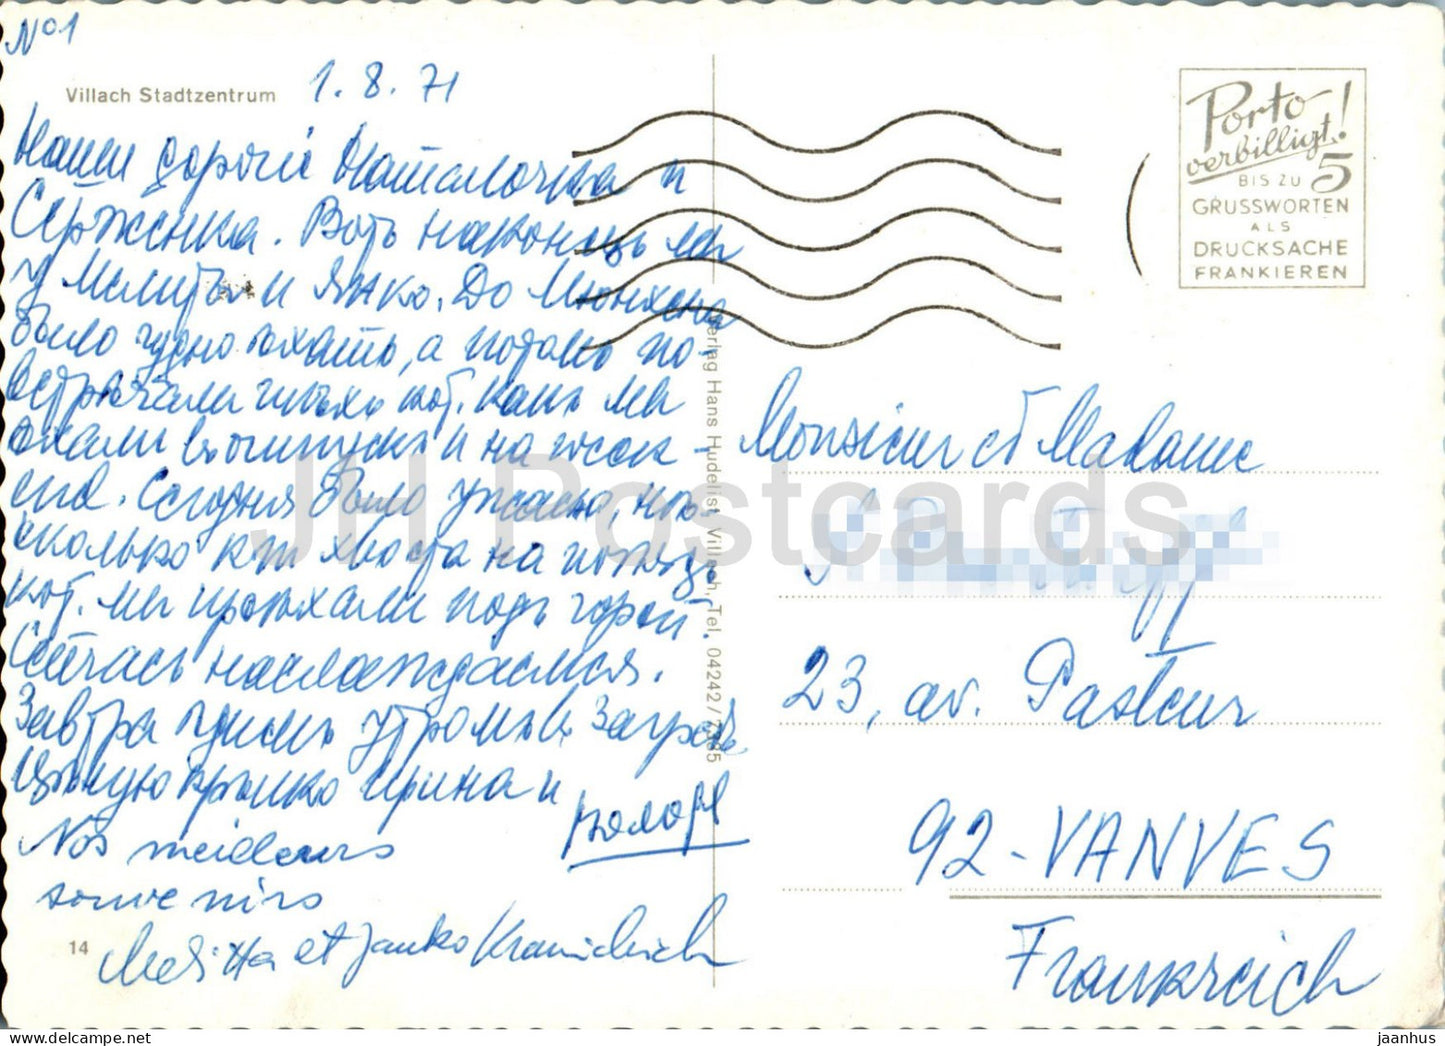 №1
Villach Stadtzentrum
1.8.71
Наши дорогiе Наташочка и
Сѣрженка. Вотъ наконецъ мы
у Мелиты и Янко. До Мюнхена
было чудно ѣхать, а потомъ по-
встрѣчали кот. какъ мы
ѣхали и на
Сегодня было ужасно, нѣ-
сколько км хвоста на
кот. мы проѣхали подъ горой.
Сейчасъ наслаждаемся.
Завтра утромъ въ Загребъ.
Цѣлую крѣпко Ирина и
Nos meilleurs
souvenirs
Melitta et Janko
14
Verlag Hans Hudelist, Villach, Tel. 04242/7385
Porto
verbilligt!
5
BIS ZU
GRUSSWORTEN
ALS
DRUCKSACHE
FRANKIEREN
Monsieur et Madame
23, av. Pasteur
92-VANVES
Frankreich
JH Postcards
jaanhus © www.delcampe.net